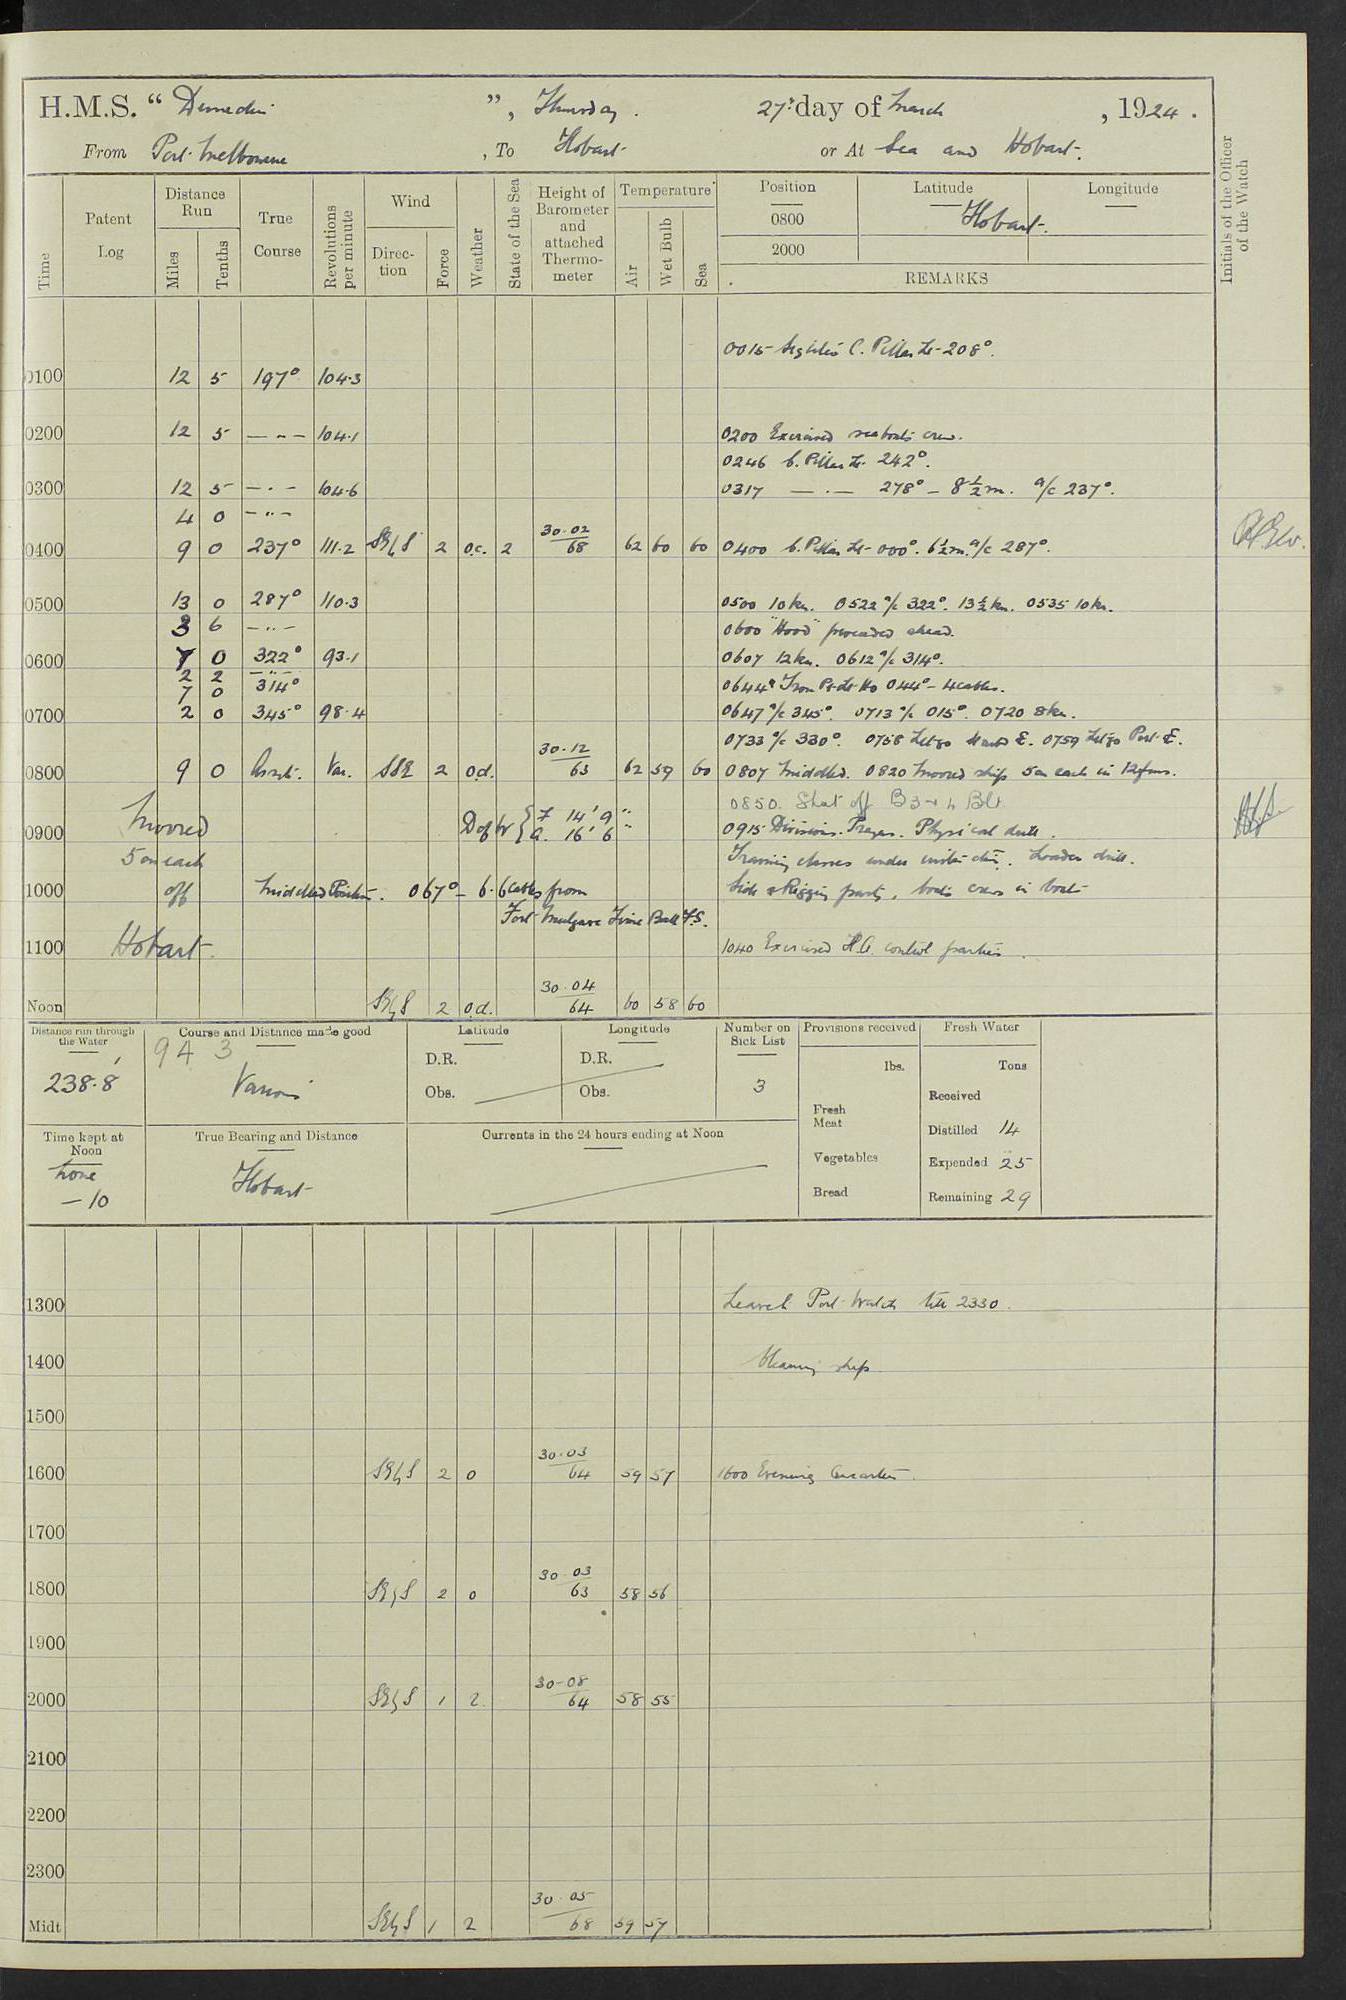 H.M.S. " Dunedin ", Thursday. 27th day of March, 1924.
From Port Melbourne, To Hobart or At Sea and Hobart.
Initials of the Officer of the Watch
Time
Patent Log
Distance Run
Miles
Tenths
True Course
Revolutions per minute
Wind
Direction
Force
Weather
State of the Sea
Height of Barometer and attached Thermometer
Temperature
Air
Wet Bulb
Sea
Position Latitude Longitude
0800 Hobart.
2000
REMARKS
0015 Sighted C. Pillar Lt. 208°.
0100 12 5 197° 104.3
0200 12 5 — " — 104.1 0200 Exercised seaboats crew.
0246 C. Pillar Lt. 242°.
0300 12 5 — " — 104.6 0317 — " — 278° — 8½ m. a/c 237°.
4 0 — " —
0400 9 0 237° 111.2 SE/S 2 o.c. 2 30.02 68 62 60 60 0400 C. Pillar Lt. 000°. 6½ m. a/c 287°.
0500 13 0 287° 110.3 0500 10 kn. 0522 a/c 322°. 13½ kn. 0535 10 kn.
3 6 — " — 0600 "Hood" proceeded ahead.
0600 7 0 322° 93.1 0607 12 kn. 0612 a/c 314°.
2 2 — " —
7 0 314° 0644 Iron Pt. Lt. Ho 044° — 4 cables.
0700 2 0 345° 98.4 0647 a/c 345°. 0713 a/c 015°. 0720 8 kn.
0733 a/c 330°. 0758 Let go Starbd. 0759 Let go Port.
0800 9 0 Var. SSE 2 o.d. 30.12 63 62 59 60 0807 Middled. 0820 Moored ship 5 on each in 12 fms.
0850. Shut off
0900 Moored D of W { F 14' 9" A. 16' 6" 0915 Divisions. Prayers. Physical drill.
5 on each Training classes under instruction. Loader drill.
1000 off Middled Position. 067° — 6.6 cables from Side & Rigging party, boats crews in boats
Fort Mulgrave Time Ball F.S.
1100 Hobart. 1040 Exercised H.A. control parties.
Noon SE/S 2 o.d. 30.04 64 60 58 60
Distance run through the Water
238.8
Course and Distance made good
94 3
Various
Latitude
D.R.
Obs.
Longitude
D.R.
Obs.
Number on Sick List
3
Provisions received
lbs.
Fresh Meat
Vegetables
Bread
Fresh Water
Tons
Received
Distilled 14
Expended 25
Remaining 29
Time kept at Noon
Zone
—10
True Bearing and Distance
Hobart
Currents in the 24 hours ending at Noon
1300 Leave to Port Watch till 2330.
1400 Cleaning ship
1500
1600 SE/S 2 o 30.03 64 59 57 1600 Evening Quarters.
1700
1800 SE/S 2 o 30.03 63 58 56
1900
2000 SE/S 1 2 30.08 64 58 55
2100
2200
2300
Midt SE/S 1 2 30.05 68 59 57